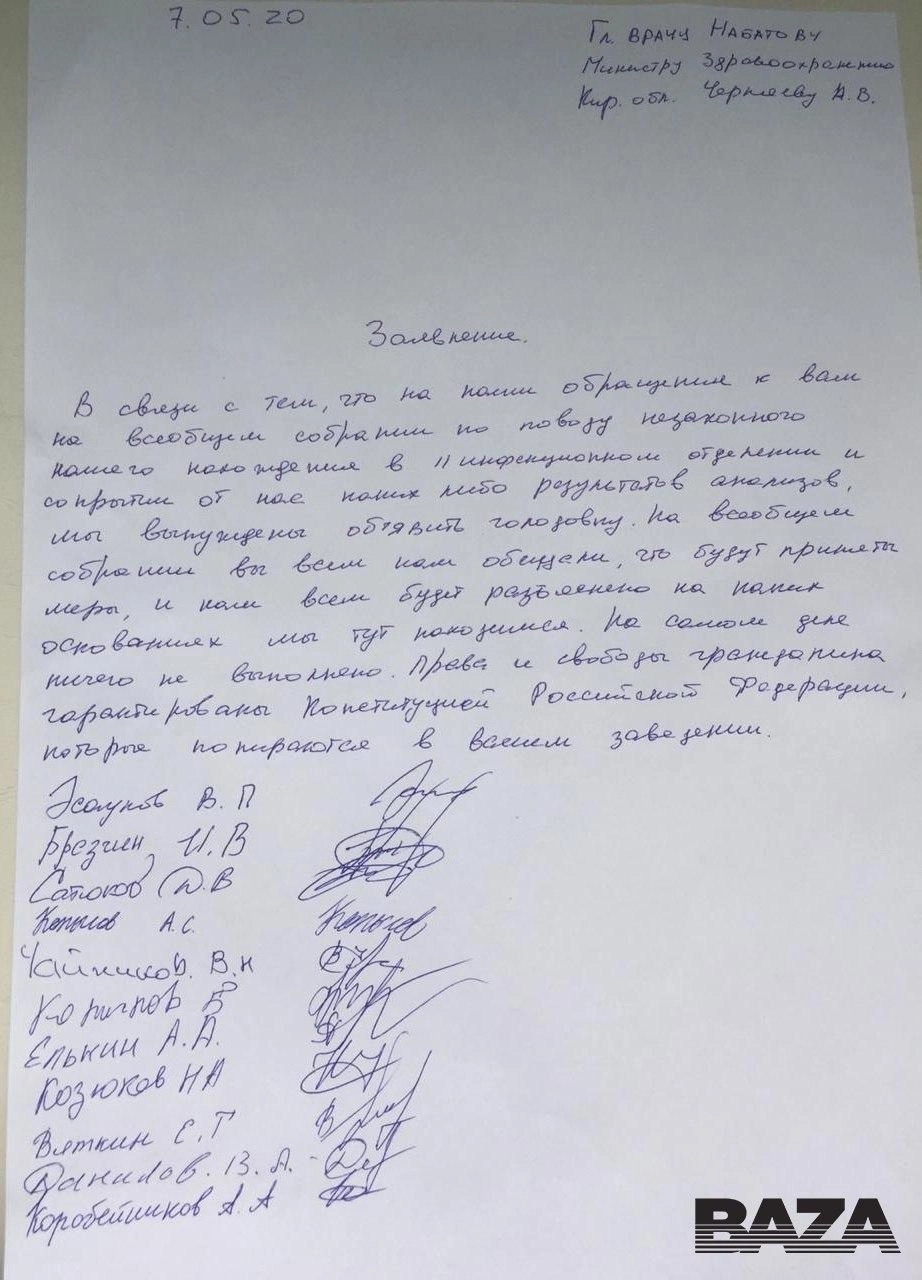 7.05.20
Гл. врачу Набатову
Министру Здравоохранения
Кир. обл. Черняеву А.В.
Заявление.
В связи с тем, что на наши обращения к вам
на всеобщем собрании по поводу незаконного
нашего нахождения в II инфекционном отделении и
сокрытии от нас каких либо результатов анализов,
мы вынуждены объявить голодовку. На всеобщем
собрании вы всем нам обещали, что будут приняты
меры, и нам всем будет разъяснено на каких
основаниях мы тут находимся. На самом деле
ничего не выполнено. Права и свободы гражданина
гарантированы Конституцией Российской Федерации,
которые попираются в вашем заведении.
В. П
И. В
Сатюков Д.В
Копылов А.С. Копылов
Чайников. В.Н
Елькин А.А.
Козюков НА
Вяткин С.Г
Данилов. В.А.
Коробейников А.А
BAZA